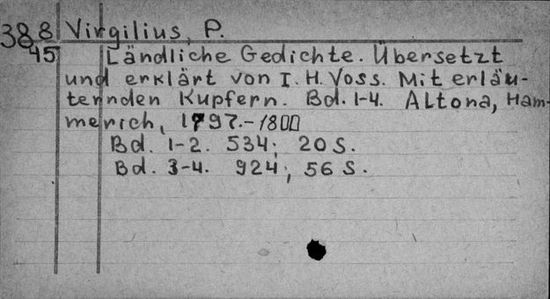 388 Virgilius, P.
45 Ländliche Gedichte. Übersetzt
und erklärt von I. H. Voss. Mit erläu-
ternden Kupfern. Bd. 1-4. Altona, Ham-
merich, 1797.-1800
Bd. 1-2. 534; 20 S.
Bd. 3-4. 924; 56 S.